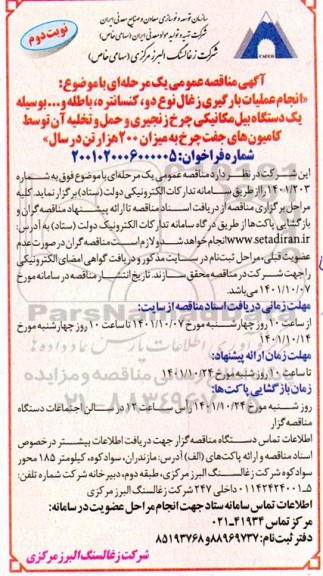 سازمان توسعه و نوسازی معادن و صنایع معدنی ایران
شرکت تهیه و تولید مواد معدنی ایران (سهامی خاص)
شرکت زغالسنگ البرز مرکزی (سهامی خاص)
نوبت دوم
آگهی مناقصه عمومی یک مرحله‌ای با موضوع:
«انجام عملیات بارگیری زغال نوع دو، کنسانتره، باطله و... بوسیله
یک دستگاه بیل مکانیکی چرخ زنجیری و حمل و تخلیه آن توسط
کامیون‌های جفت چرخ به میزان ۲۰۰ هزار تن در سال»
شماره فراخوان: ۲۰۰۱۰۲۰۰۰۶۰۰۰۰۰۵
این شرکت در نظر دارد مناقصه عمومی یک مرحله‌ای با موضوع فوق به شماره
۱۴۰۱/۲۰۳ را از طریق سامانه تدارکات الکترونیکی دولت (ستاد) برگزار نماید. کلیه
مراحل برگزاری مناقصه از دریافت اسناد مناقصه تا ارائه پیشنهاد مناقصه گران و
بازگشایی پاکت‌ها از طریق درگاه سامانه تدارکات الکترونیک دولت (ستاد) به آدرس:
www.setadiran.ir انجام خواهد شد و لازم است مناقصه گران در صورت عدم
عضویت قبلی، مراحل ثبت نام در سایت مذکور و دریافت گواهی امضای الکترونیکی
را جهت شرکت در مناقصه محقق سازند. تاریخ انتشار مناقصه در سامانه مورخ
۱۴۰۱/۱۰/۰۷ می باشد.
مهلت زمانی دریافت اسناد مناقصه از سایت:
از ساعت ۱۰ روز چهارشنبه مورخ ۱۴۰۱/۱۰/۰۷ تا ساعت ۱۰ روز چهارشنبه مورخ
۱۴۰۱/۱۰/۱۴
مهلت زمان ارائه پیشنهاد:
تا ساعت ۱۰ روز شنبه مورخ ۱۴۰۱/۱۰/۲۴
زمان بازگشایی پاکت‌ها:
روز شنبه مورخ ۱۴۰۱/۱۰/۲۴ رأس ساعت ۱۲ در سالن اجتماعات دستگاه
مناقصه گزار
اطلاعات تماس دستگاه مناقصه گزار جهت دریافت اطلاعات بیشتر در خصوص
اسناد مناقصه و ارائه پاکت‌های (الف) آدرس: مازندران، سوادکوه، کیلومتر ۱۸۵ محور
سوادکوه شرکت زغالسنگ البرز مرکزی، طبقه دوم، دبیرخانه شرکت شماره تلفن:
۵-۰۱۱۴۲۴۲۴۰۰۱ داخلی ۲۴۷ شرکت زغالسنگ البرز مرکزی
اطلاعات تماس سامانه ستاد جهت انجام مراحل عضویت در سامانه:
مرکز تماس ۴۱۹۳۴-۰۲۱
دفتر ثبت نام: ۸۸۹۶۹۷۳۷ و ۸۵۱۹۳۷۶۸
شرکت زغالسنگ البرز مرکزی